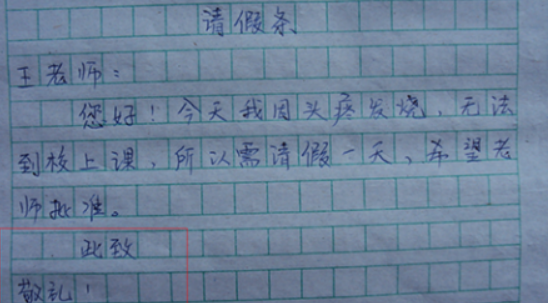 请假条
王老师：
您好！今天我因头疼发烧，无法
到校上课，所以需请假一天，希望老
师批准。
此致
敬礼！